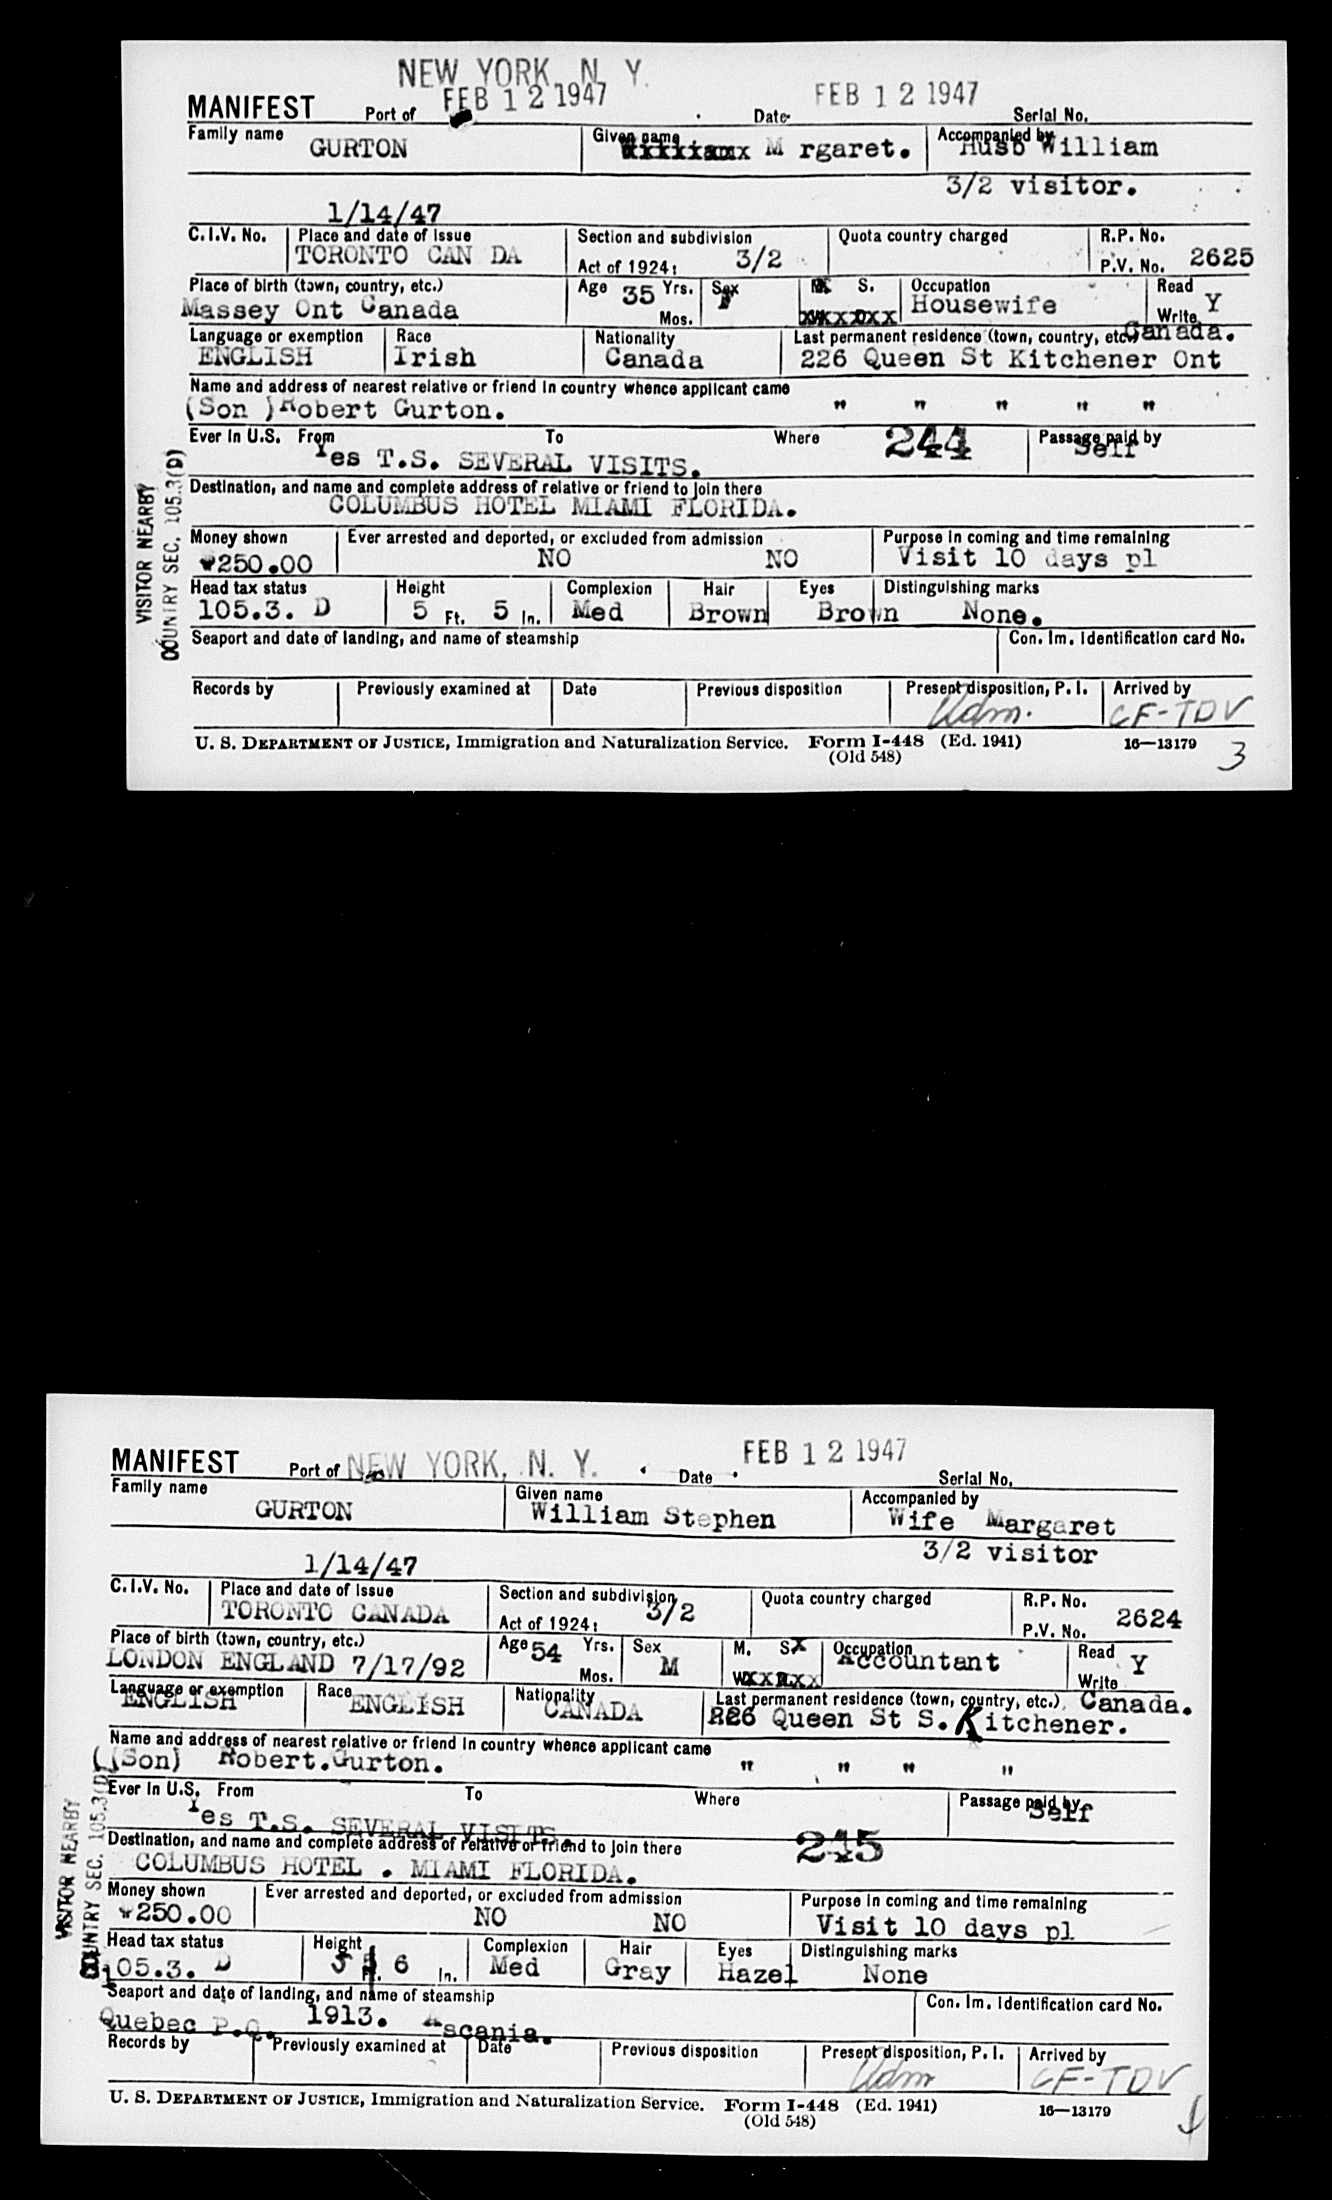 NEW YORK, N. Y.
MANIFEST Port of FEB 12 1947 Date FEB 12 1947 Serial No.
Family name GURTON Given name M rgaret. Accompanied by Husb William
3/2 visitor.
1/14/47
C.I.V. No. Place and date of issue Section and subdivision Quota country charged R.P. No.
TORONTO CAN DA Act of 1924: 3/2 P.V. No. 2625
Place of birth (town, country, etc.) Age 35 Yrs. Sex F S. Occupation Read
Massey Ont Canada Mos. Housewife Write Y
Language or exemption Race Nationality Last permanent residence (town, country, etc.) Canada.
ENGLISH Irish Canada 226 Queen St Kitchener Ont
Name and address of nearest relative or friend in country whence applicant came
(Son ) Robert Gurton. " " " " "
Ever in U.S. From To Where 244 Passage paid by
Yes T.S. SEVERAL VISITS. Self
Destination, and name and complete address of relative or friend to join there
COLUMBUS HOTEL MIAMI FLORIDA.
Money shown Ever arrested and deported, or excluded from admission Purpose in coming and time remaining
250.00 NO NO Visit 10 days pl
Head tax status Height Complexion Hair Eyes Distinguishing marks
105.3. D 5 Ft. 5 In. Med Brown Brown None.
Seaport and date of landing, and name of steamship Con. Im. Identification card No.
Records by Previously examined at Date Previous disposition Present disposition, P. I. Arrived by
Adm. CF-TDV
U. S. DEPARTMENT OF JUSTICE, Immigration and Naturalization Service. Form I-448 (Ed. 1941) 16—13179 3
(Old 548)
VISITOR NEARBY
COUNTRY SEC. 105.3(D)
MANIFEST Port of NEW YORK, N. Y. Date FEB 12 1947 Serial No.
Family name Given name Accompanied by
GURTON William Stephen Wife Margaret
3/2 visitor
1/14/47
C.I.V. No. Place and date of issue Section and subdivision Quota country charged R.P. No.
TORONTO CANADA Act of 1924: 3/2 P.V. No. 2624
Place of birth (town, country, etc.) Age 54 Yrs. Sex M. S. Occupation Read
LONDON ENGLAND 7/17/92 Mos. M Accountant Write Y
Language or exemption Race Nationality Last permanent residence (town, country, etc.) Canada.
ENGLISH ENGLISH CANADA 226 Queen St S. Kitchener.
Name and address of nearest relative or friend in country whence applicant came
(Son) Robert.Gurton. " " " "
Ever in U.S. From To Where Passage paid by
Yes T.S. SEVERAL VISITS. Self
Destination, and name and complete address of relative or friend to join there 245
COLUMBUS HOTEL . MIAMI FLORIDA.
Money shown Ever arrested and deported, or excluded from admission Purpose in coming and time remaining
250.00 NO NO Visit 10 days pl
Head tax status Height Complexion Hair Eyes Distinguishing marks
105.3. D 5 6 In. Med Gray Hazel None
Seaport and date of landing, and name of steamship Con. Im. Identification card No.
Quebec P.Q. 1913. Ascania.
Records by Previously examined at Date Previous disposition Present disposition, P. I. Arrived by
Adm CF-TDV
U. S. DEPARTMENT OF JUSTICE, Immigration and Naturalization Service. Form I-448 (Ed. 1941) 16—13179
(Old 548)
VISITOR NEARBY
COUNTRY SEC. 105.3(D)